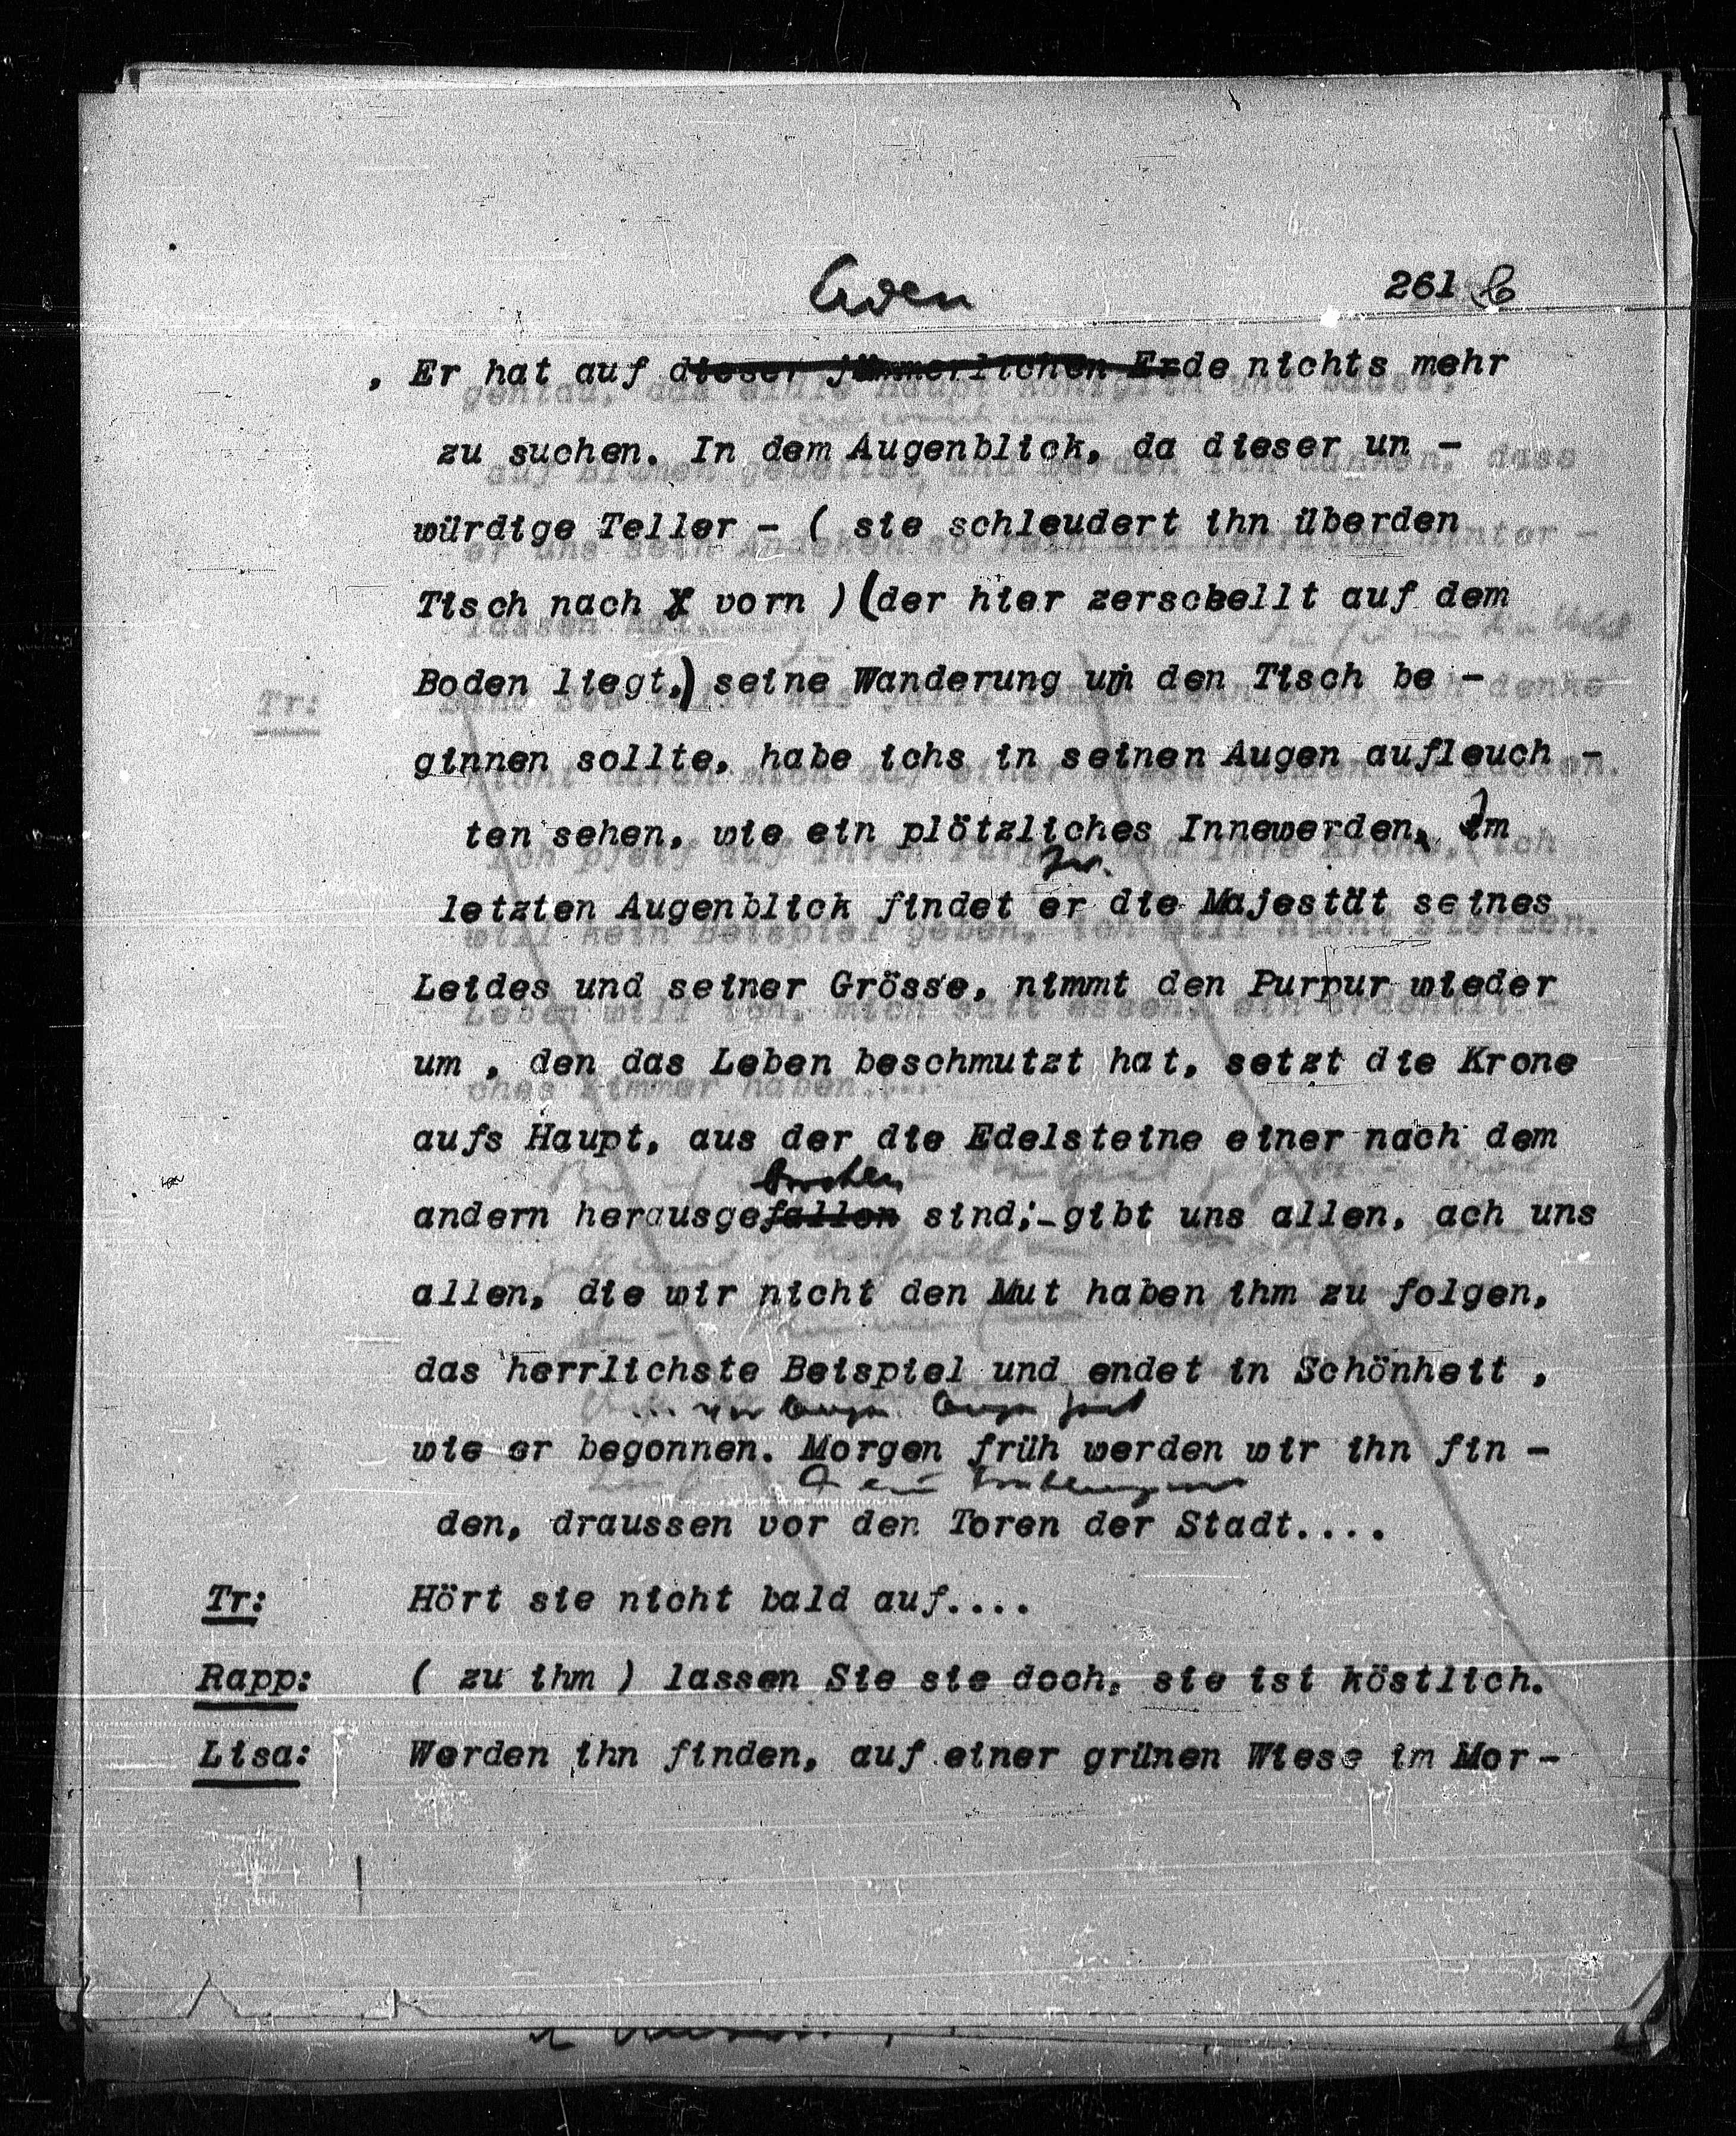 Erden
261 b
, Er hat auf dieser jämmerlichen Erde nichts mehr
zu suchen. In dem Augenblick, da dieser un -
würdige Teller - ( sie schleudert ihn überden
Tisch nach X vorn ) (der hier zerschellt auf dem
Boden liegt,) seine Wanderung um den Tisch be -
ginnen sollte, habe ichs in seinen Augen aufleuch -
ten sehen, wie ein plötzliches Innewerden, Im
letzten Augenblick findet er die Majestät seines
Leides und seiner Grösse, nimmt den Purpur wieder
um , den das Leben beschmutzt hat, setzt die Krone
aufs Haupt, aus der die Edelsteine einer nach dem
brochen
andern herausgefallen sind;-gibt uns allen, ach uns
allen, die wir nicht den Mut haben ihm zu folgen,
das herrlichste Beispiel und endet in Schönheit ,
wie er begonnen. Morgen früh werden wir ihn fin -
den, draussen vor den Toren der Stadt....
Tr: Hört sie nicht bald auf....
Rapp: ( zu ihm ) lassen Sie sie doch, sie ist köstlich.
Lisa: Werden ihn finden, auf einer grünen Wiese im Mor-